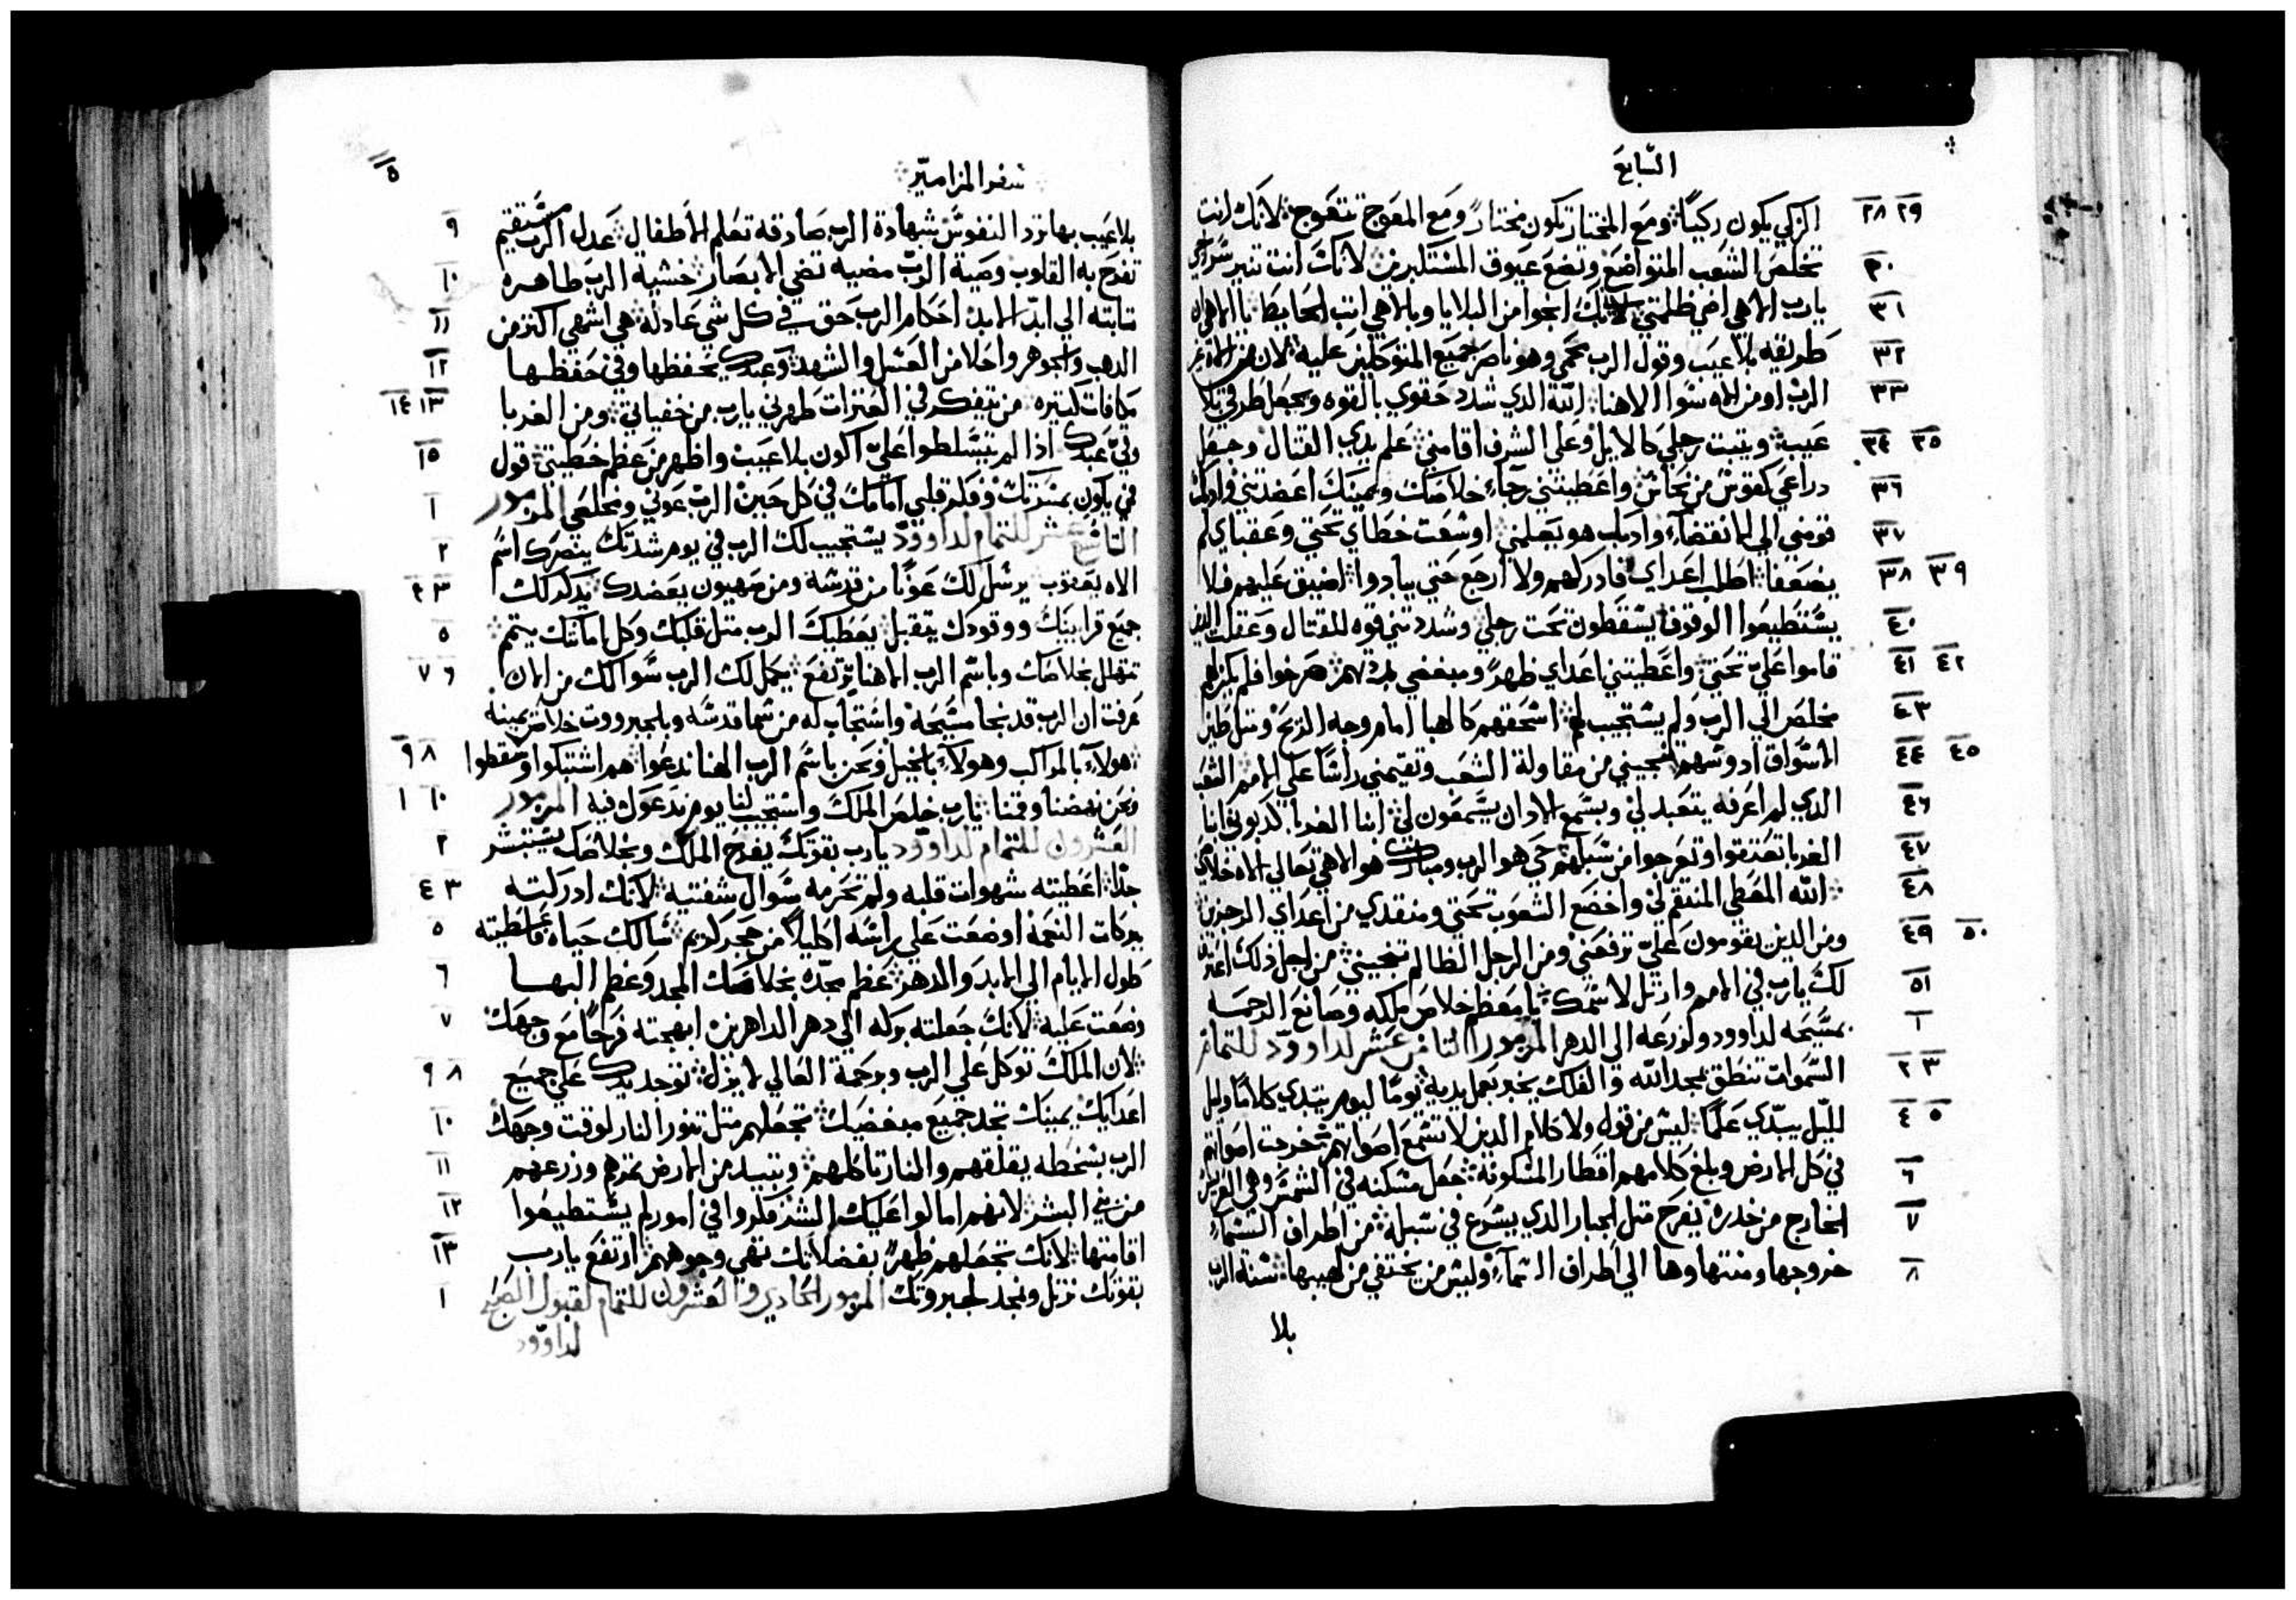 السَّابع
٢٨ ٢٩ الزكي يكون زكيًا ومع المختار تكون مختارً ومع المعوج تتعوج لانك انت
٣٠ تخلص الشعب المتواضع وتضع عيون المستكبرين لانك انت تنير سراجي
٣١ يارب الاهي اضي ظلمتي لانك انجوا من البلايا وبالاهي اثب الحايط ياالاهي
٣٢ طريقه بلا عيب وقول الرب محمي وهو ناصر جميع المتوكلين عليه لان من الاه غير
٣٣ الرب او من الاه سوا الاهنا الله الدي شدد حقوي بالقوه وجعل طرقي بلا
٣٤ ٣٥ عيب ويثبت رجلي كالايل وعلى الشرف اقامني علم يدي القتال وجعل
٣٦ دراعي كقوس من نحاس واعطيتني رجآء خلاصك ويمينك اعضدتني وادبك
٣٧ قومني الى الانقضآء وادبك هو يعلمني اوسعت خطاي تحتي وعقباي لم
٣٨ ٣٩ يضعفا اطلب اعداي فادركهم ولا ارجع حتي يبادوا اضيق عليهم فلا
٤٠ يستطيعوا الوقوف يسقطون تحت رجلي وشددتني قوه للقتال وعقلت الدين
٤١ ٤٢ قاموا علي تحتي واعطيتني اعداي ظهرً ومبغضي صرخوا فلم يكن لهم
٤٣ مخلص الي الرب ولم يستجيب لهم اسحقهم كالهبا امام وجه الريح ومثل طين
٤٤ ٤٥ الاسواق ادوسهم تنجيني من مقاولة الشعب وتقيمني راسًا علي الامم الشعب
٤٦ الدي لم اعرفه يتعبد لي وبسمع الادان يسمعون لي ابنا الغربا كدبوني ابنا
٤٧ الغربا تعتقوا وتعرجوا من سبلهم حي هو الرب ومبارك هو الاهي تعالي الاه خلاصي
٤٨ الله المعطي المنتقم لي واخضع الشعوب تحتي ومنقدي من اعداي المرجزين
٤٩ ٥٠ ومن الدين يقومون علي ترفعني ومن الرجل الظالم تنجيني من اجل ذلك اعترف
٥١ لك يارب في الامم وارتل لاسمك يا معظم خلاص ملكه وصانع الرحمه
١ بمسيحه لداوود ولزرعه الى الدهر المزمور الثامن عشر لداوود للتمام
٢ ٣ السموات تنطق بمجد الله والفلك يخبر بعمل يديه يومًا ليوم يبدي كلامًا وليل
٤ ٥ لليل يبدّي علمًا ليس من قول ولا كلام الدين لا تسمع اصواتهم خرجت اصواتهم
٦ في كل الارض وبلغ كلامهم اقطار المسكونة جعل مسكنه في الشمس وهي العريس
٧ الخارج من خدره يفرح متل الجبار الدي يسرع في سبله من اطراف السَّمآء
٨ خروجها ومنتهاها الي اطراف السمآء وليس من يختفي من لهيبها سنه الرب
بلا
سفر المزامير
٥
٩ بلا عيب بها ترد النفوس شهادة الرب صادقه تعلم الاطفال عدل الرب مستقيم
١٠ تفرح به القلوب وصية الرب مضيه تضي الابصار خشية الرب طاهره
١١ تابته الي ابد الابد احكام الرب حق في كل شي عادلة هي اشهى اكثر من
١٢ الدهب والجوهر واحلا من العسل والشهد وعبدك يحفظها وفي حفظها
١٣ ١٤ مكافات كتيره من يتفكر في العترات طهرني يارب من خفياتي ومن الغربا
١٥ وقي عبدك ادا لم يتسلطوا علي اكون بلا عيب واظهر من عظم خطيتي قول
١ في يكون بمسرتك وفكر قلبي امامك في كل حين الرب عوني ومخلصي المزمور
٢ التاسع عشر للتمام لداوود يستجيب لك الرب في يوم شدتك ينصرك اسم
٣ ٤ الاه يعقوب يرسل لك عونًا من قدسه ومن صهيون يعضدك يدكر لك
٥ جميع قرابينك ووقودك يتقبل يعطيك الرب متل قلبك وكل امانتك يتمم
٦ ٧ نتهلل بخلاصك وباسم الرب الاهنا نرتفع يكمل لك الرب سوالك من الان
عرفت ان الرب قد نجا مسيحه واستجاب له من سما قدسه وبالجبرووت خلاص يمينه
٨ ٩ هولآء بالمراكب وهولآء بالخيل ونحن باسم الرب الهنا ندعوا هم اشتبكوا وسقطوا
١٠ ١ ونحن نهضنا وقمنا يارب خلص الملك واستجيب لنا يوم ندعوك فيه المزمور
٢ العشرون للتمام لداوود يارب بقوتك يفرح الملك وبخلاصك يستبشر
٣ ٤ جدًا اعطيته شهوات قلبه ولم تحرمه سوال شفتيه لانك ادركته
٥ ببركات النعمة اوضعت علي راسه اكليلاً من حجر كريم سالك حياه فاعطيته
٦ طول الايام الى الابد والدهر عظم مجده بخلاصك المجد وعظم البها
٧ وضعت عليه لانك جعلته بركه الي دهر الداهرين ابهجته فرحًا مع وجهك
٨ ٩ لان الملك توكل علي الرب وبرحمة العالي لا يزل توجد يدك علي جميع
١٠ اعدايك يمينك تجد جميع مبغضيك تجعلهم متل تنور النار لوقت وجهك
١١ الرب بسخطه يقلقهم والنار تاكلهم وتبيد من الارض تمرهم وزرعهم
١٢ من بني البشر لانهم امالوا عليك الشر فكروا في امور لم يستطيعوا
١٣ اقامتها لانك تجعلهم ظهرً بفضلاتك تهي وجوههم ارتفع يارب
١ بقوتك نرتل ونمجد لجبروتك المزمور الحادي والعشرون للتمام لقبول الصبح
لداوود